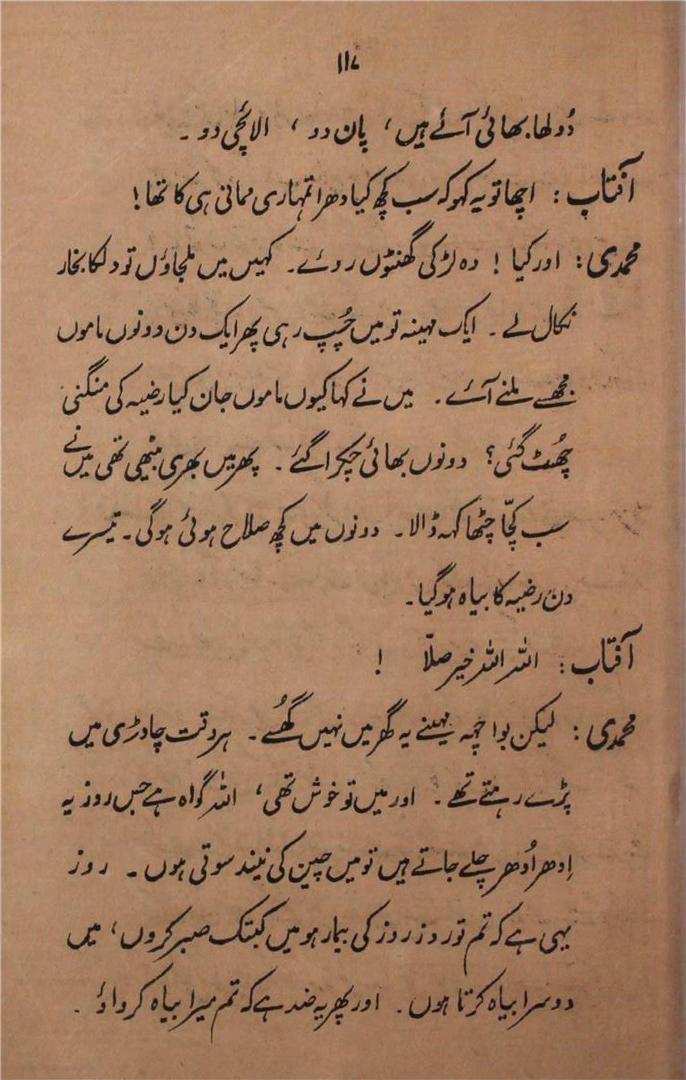 ۱۱۷
دُولھا بھائی آئے ہیں، پان دو، الائچی دو۔
آفتاب: اچھا تو یہ کہو کہ سب کچھ کیا دھرا تمہاری ممانی ہی کا تھا!
محمدی: اور کیا! وہ لڑکی گھنٹوں روئے۔ کہیں میں ملجاؤں تو دلکا بخار
نکال لے۔ ایک مہینہ تو میں چُپ رہی پھر ایک دن دونوں ماموں
مجھسے ملنے آئے۔ میں نے کہا کیوں ماموں جان کیا رضیہ کی منگنی
چھُٹ گئی؟ دونوں بھائی چکرا گئے۔ پھر میں بھری بیٹھی تھی میں نے
سب کچّا چٹھا کہہ ڈالا۔ دونوں میں کچھ صلاح ہوئی ہوگی۔ تیسرے
دن رضیہ کا بیاہ ہو گیا۔
آفتاب: اللہ اللہ خیر صلّا !
محمدی: لیکن بوا چھہ مہینے یہ گھر میں نہیں گھُسے۔ ہر وقت چاوڑی میں
پڑے رہتے تھے۔ اور میں تو خوش تھی، اللہ گواہ ہے جس روز یہ
اِدھر اُدھر چلے جاتے ہیں تو میں چین کی نیند سوتی ہوں۔ روز
یہی ہے کہ تم تو روز روز کی بیمار ہو میں کبتک صبر کروں، میں
دوسرا بیاہ کرتا ہوں۔ اور پھر یہ ضد ہے کہ تم میرا بیاہ کرواؤ۔